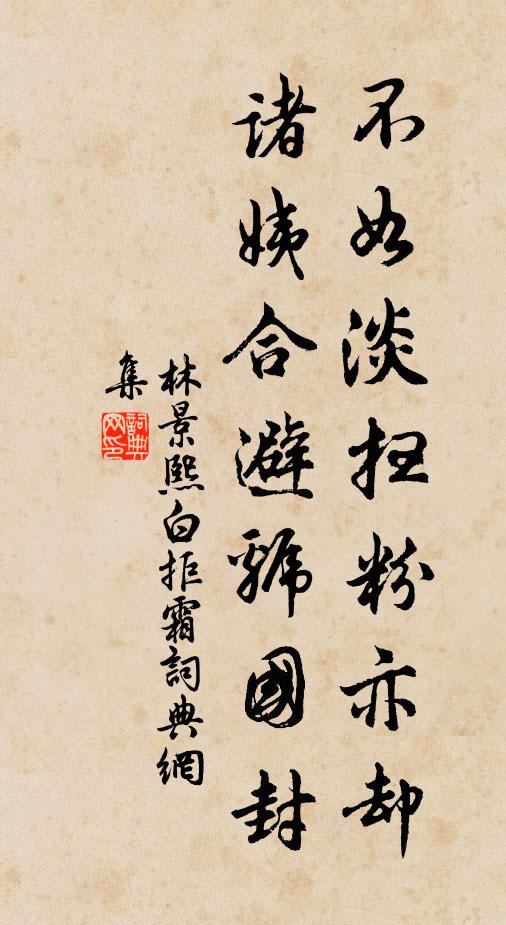 不如淡扫粉亦却
諸姨合避虢國封
林景熙白拒霜詞典網
集
詞典网印